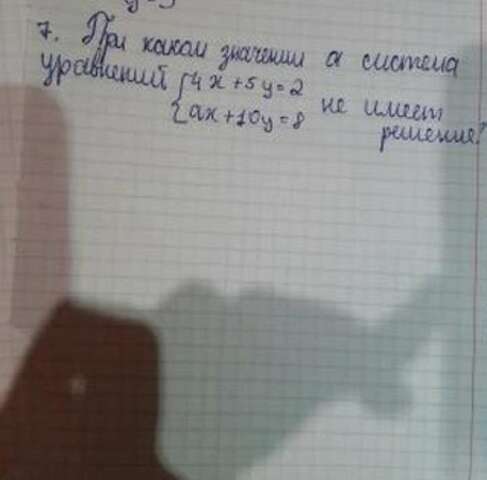 7. При каком значении a система
уравнений { 4x+5y=2
{ ax+10y=8 не имеет
решение?